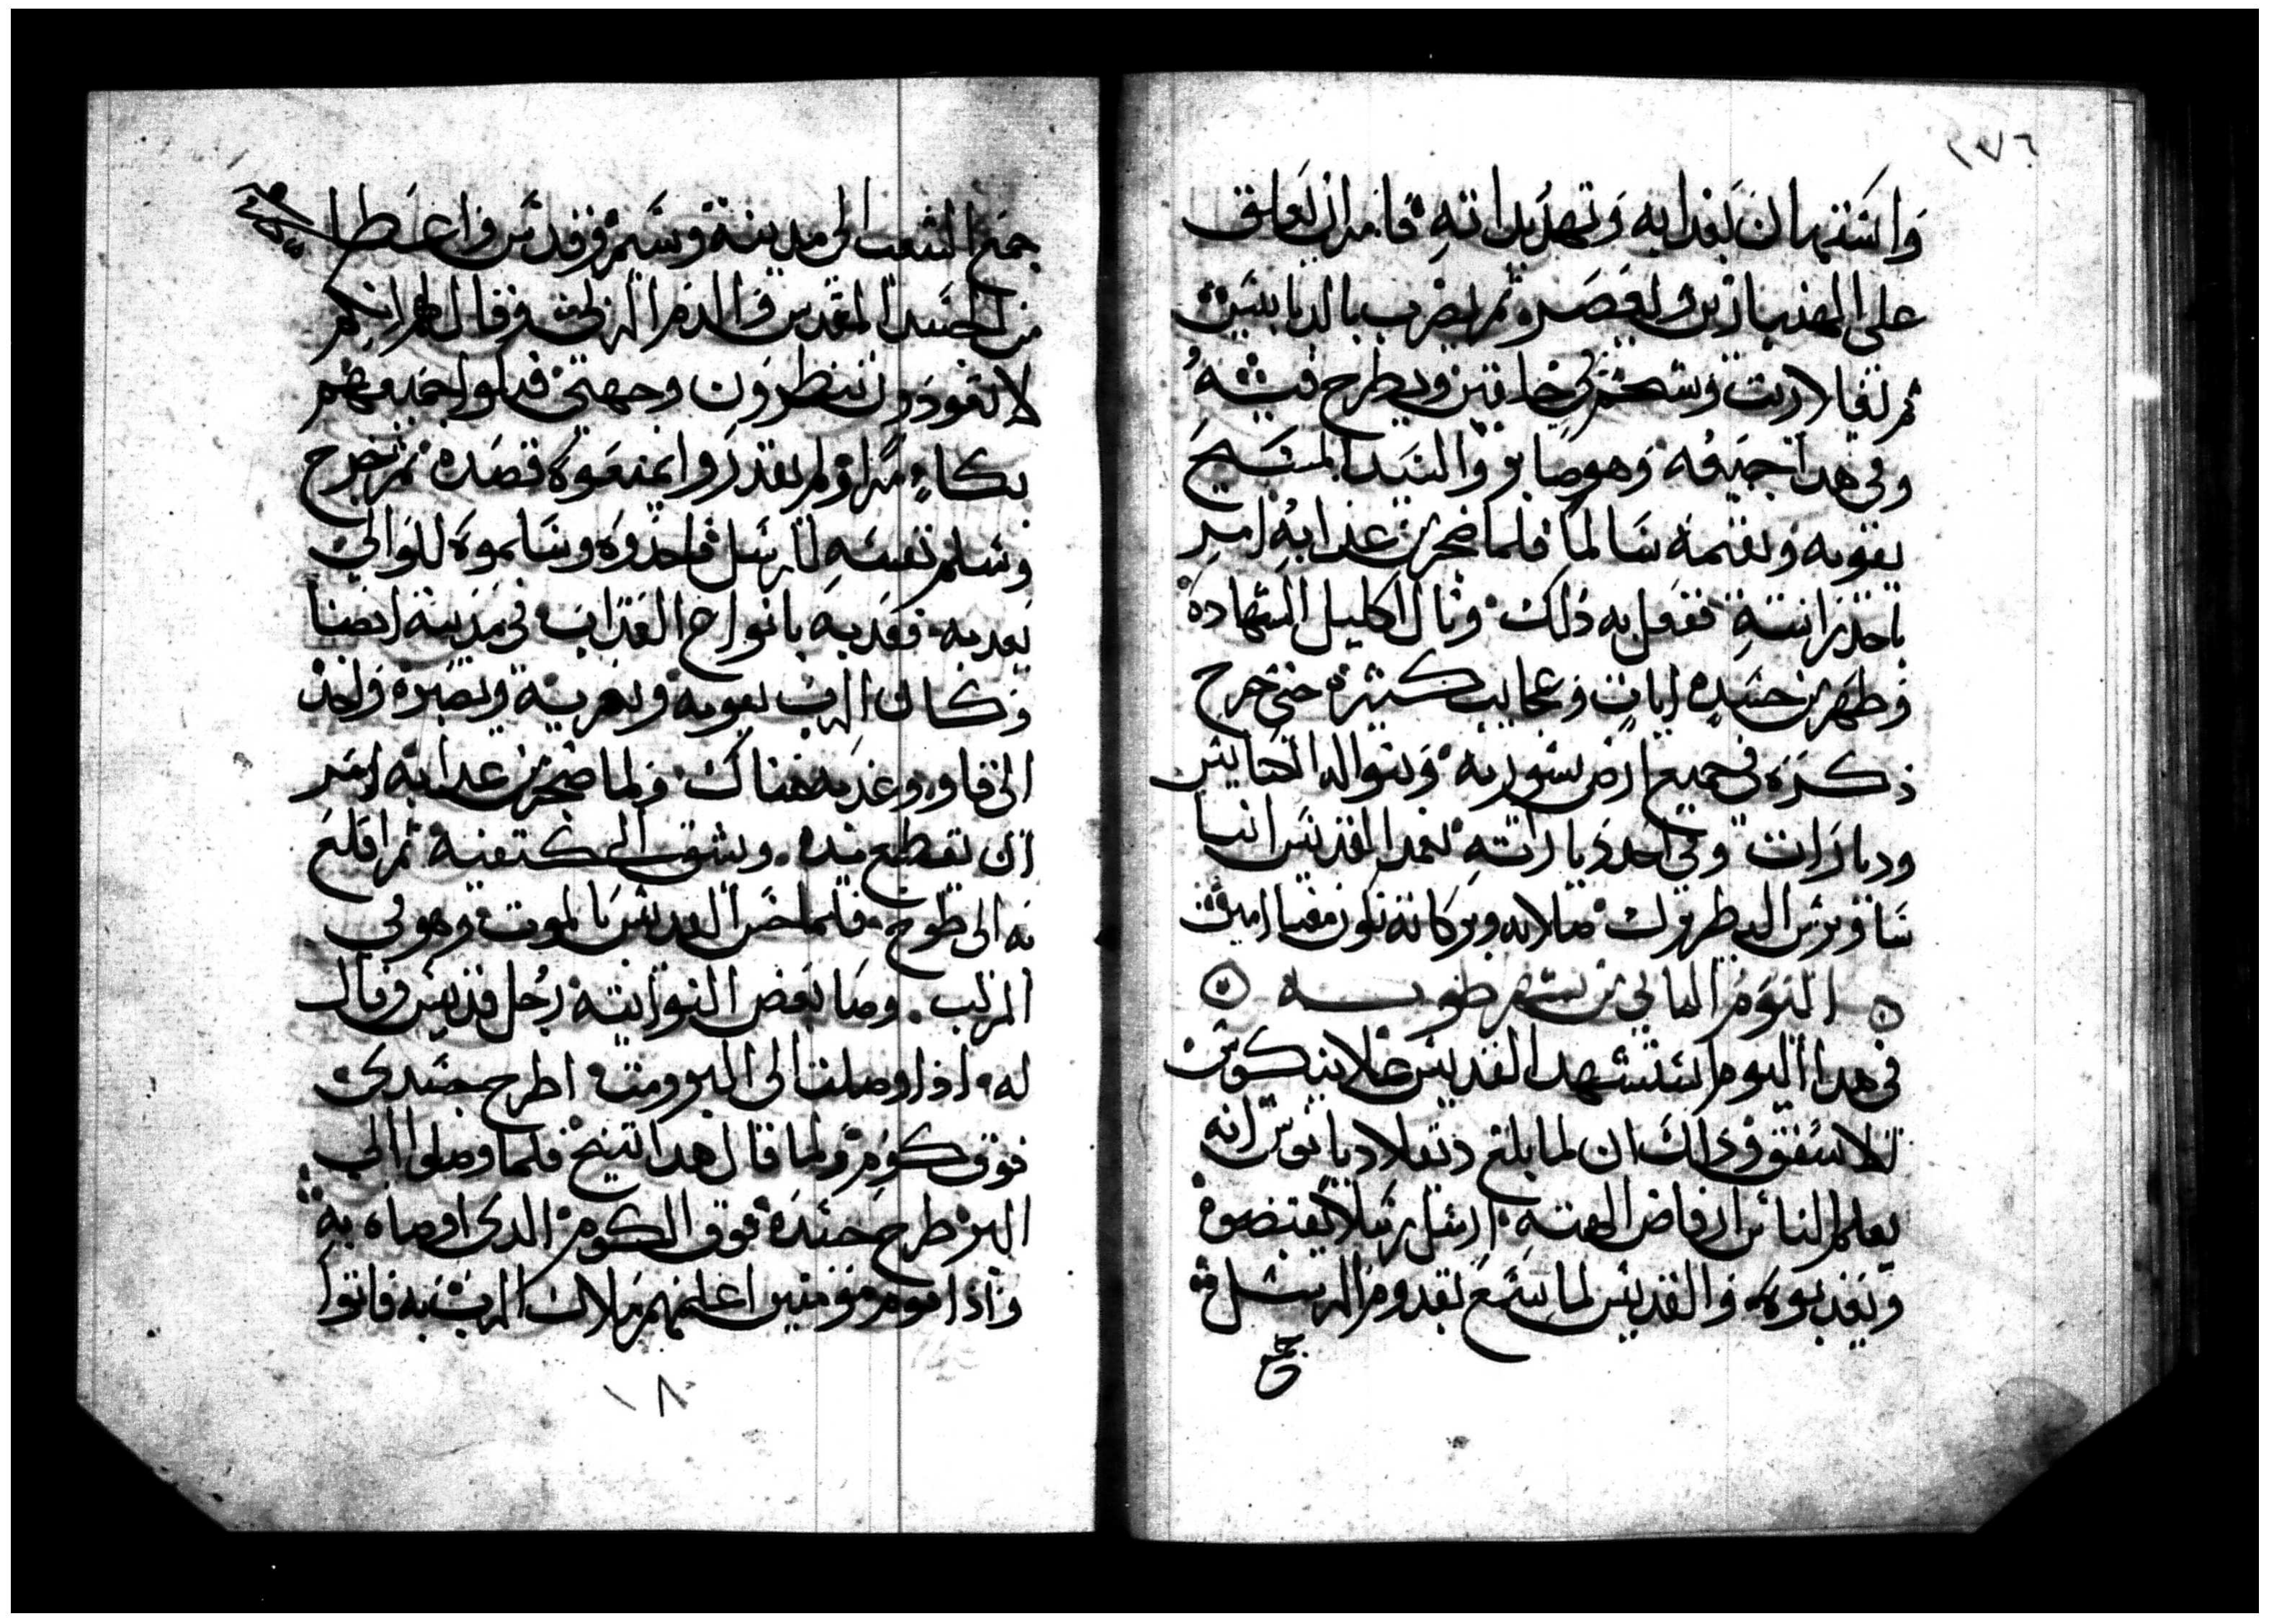 ٢٧٦
واستهان بعذابه وتهديداته فامر ان يعلق
على الهنبازين ويعصره ثم يضرب بالدبابيس
ثم تغلا زيت وشحم في خلقين ويطرح فيه
وفي هدا جميعه وهو صابر والسيد المسيح
يقويه ويقيمه سالما فلما ضجر من عدابه امر
باخد راسه ففعل به ذلك ونال اكليل الشهاده
وظهر من جسده ايات وعجايب كثيره حتى خرج
ذكره في جميع ارض سوريه وبنوا له الكنايس
وديارات وفي احد دياراته تعمد القديس انبا
ساويرس البطريرك صلاته وبركاته تكون معنا امين
اليوم الثاني من شهر طوبه
في هدا اليوم استشهد القديس غلاينيكوس
الاسقف وذلك ان لما بلغ دقلاديانوس انه
يعلم الناس ارفاض الهته ارسل رسلا يقبضوه
ويعذبوه والقديس لما سمع بقدوم الرسل
جمع
جمع الشعب الى مدينة وسيم وقدس واعطا
من الجسد المقدس والدم الزكي وقال لهم انكم
لا تعودون تنظرون وجهي فبكوا جميعهم
بكاء مرا ولم يقدروا يمنعوه قصده ثم خرج
وسلم نفسه للرسل فاخذوه وسلموه للوالي
يعدبه فعدبه بانواع العذاب في مدينة انصنا
وكان الرب يقويه ويعزيه ويصبره واخذ
الى قاو وعذبه هناك ولما ضجر من عدابه امر
ان تقطع يده ويشق الى كتفيه ثم اقلع
به الى طوخ فلما حس القديس بالموت وهو في
المركب وصا بعض النواتيه رجل قديس وقال
له اذا وصلت الى البر ومت اطرح جسدي
فوق كوم ولما قال هدا تنيح فلما وصلوا الى
البر طرح جسده فوق الكوم الدي اوصاه به
واذا قوم مومنين اعلمهم ملاك الرب به فاتوا
١٨